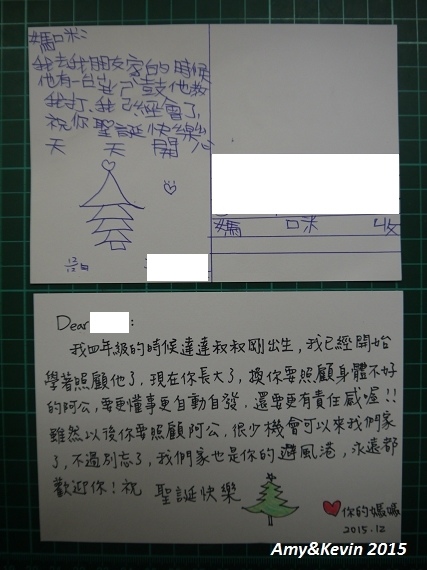 媽口米:
我去我朋友家的時候
他有一台爵士鼓他教
我打,我已經會了,
祝你聖誕快樂
天 天 開 心
12/12日
媽 口米 收
Dear :
我四年級的時候達達叔叔剛出生,我已經開始
學著照顧他了,現在你長大了,換你要照顧身體不好
的阿公,要更懂事更自動自發.還要更有責任感喔!!
雖然以後你要照顧阿公,很少機會可以來我們家
了,不過別忘了,我們家也是你的避風港,永遠都
歡迎你!祝 聖誕快樂
你的媽媽
2015.12
Amy&Kevin 2015